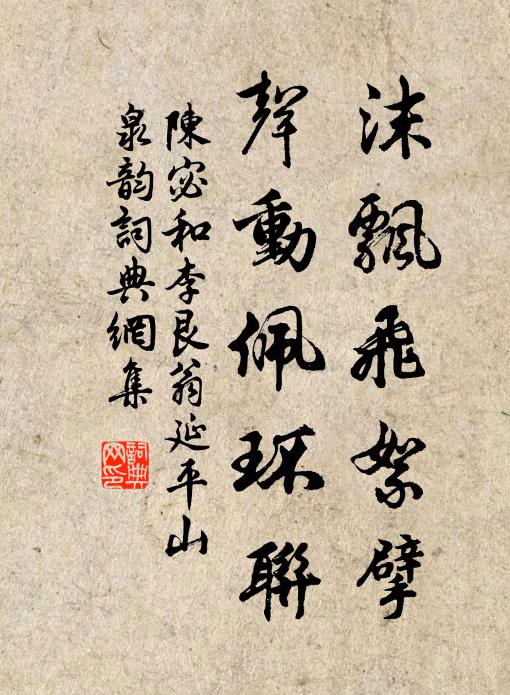 沫飄飛絮擘
聲動佩環聯
陳宓和李艮翁延平山
泉韵詞典網集
詞典
网印